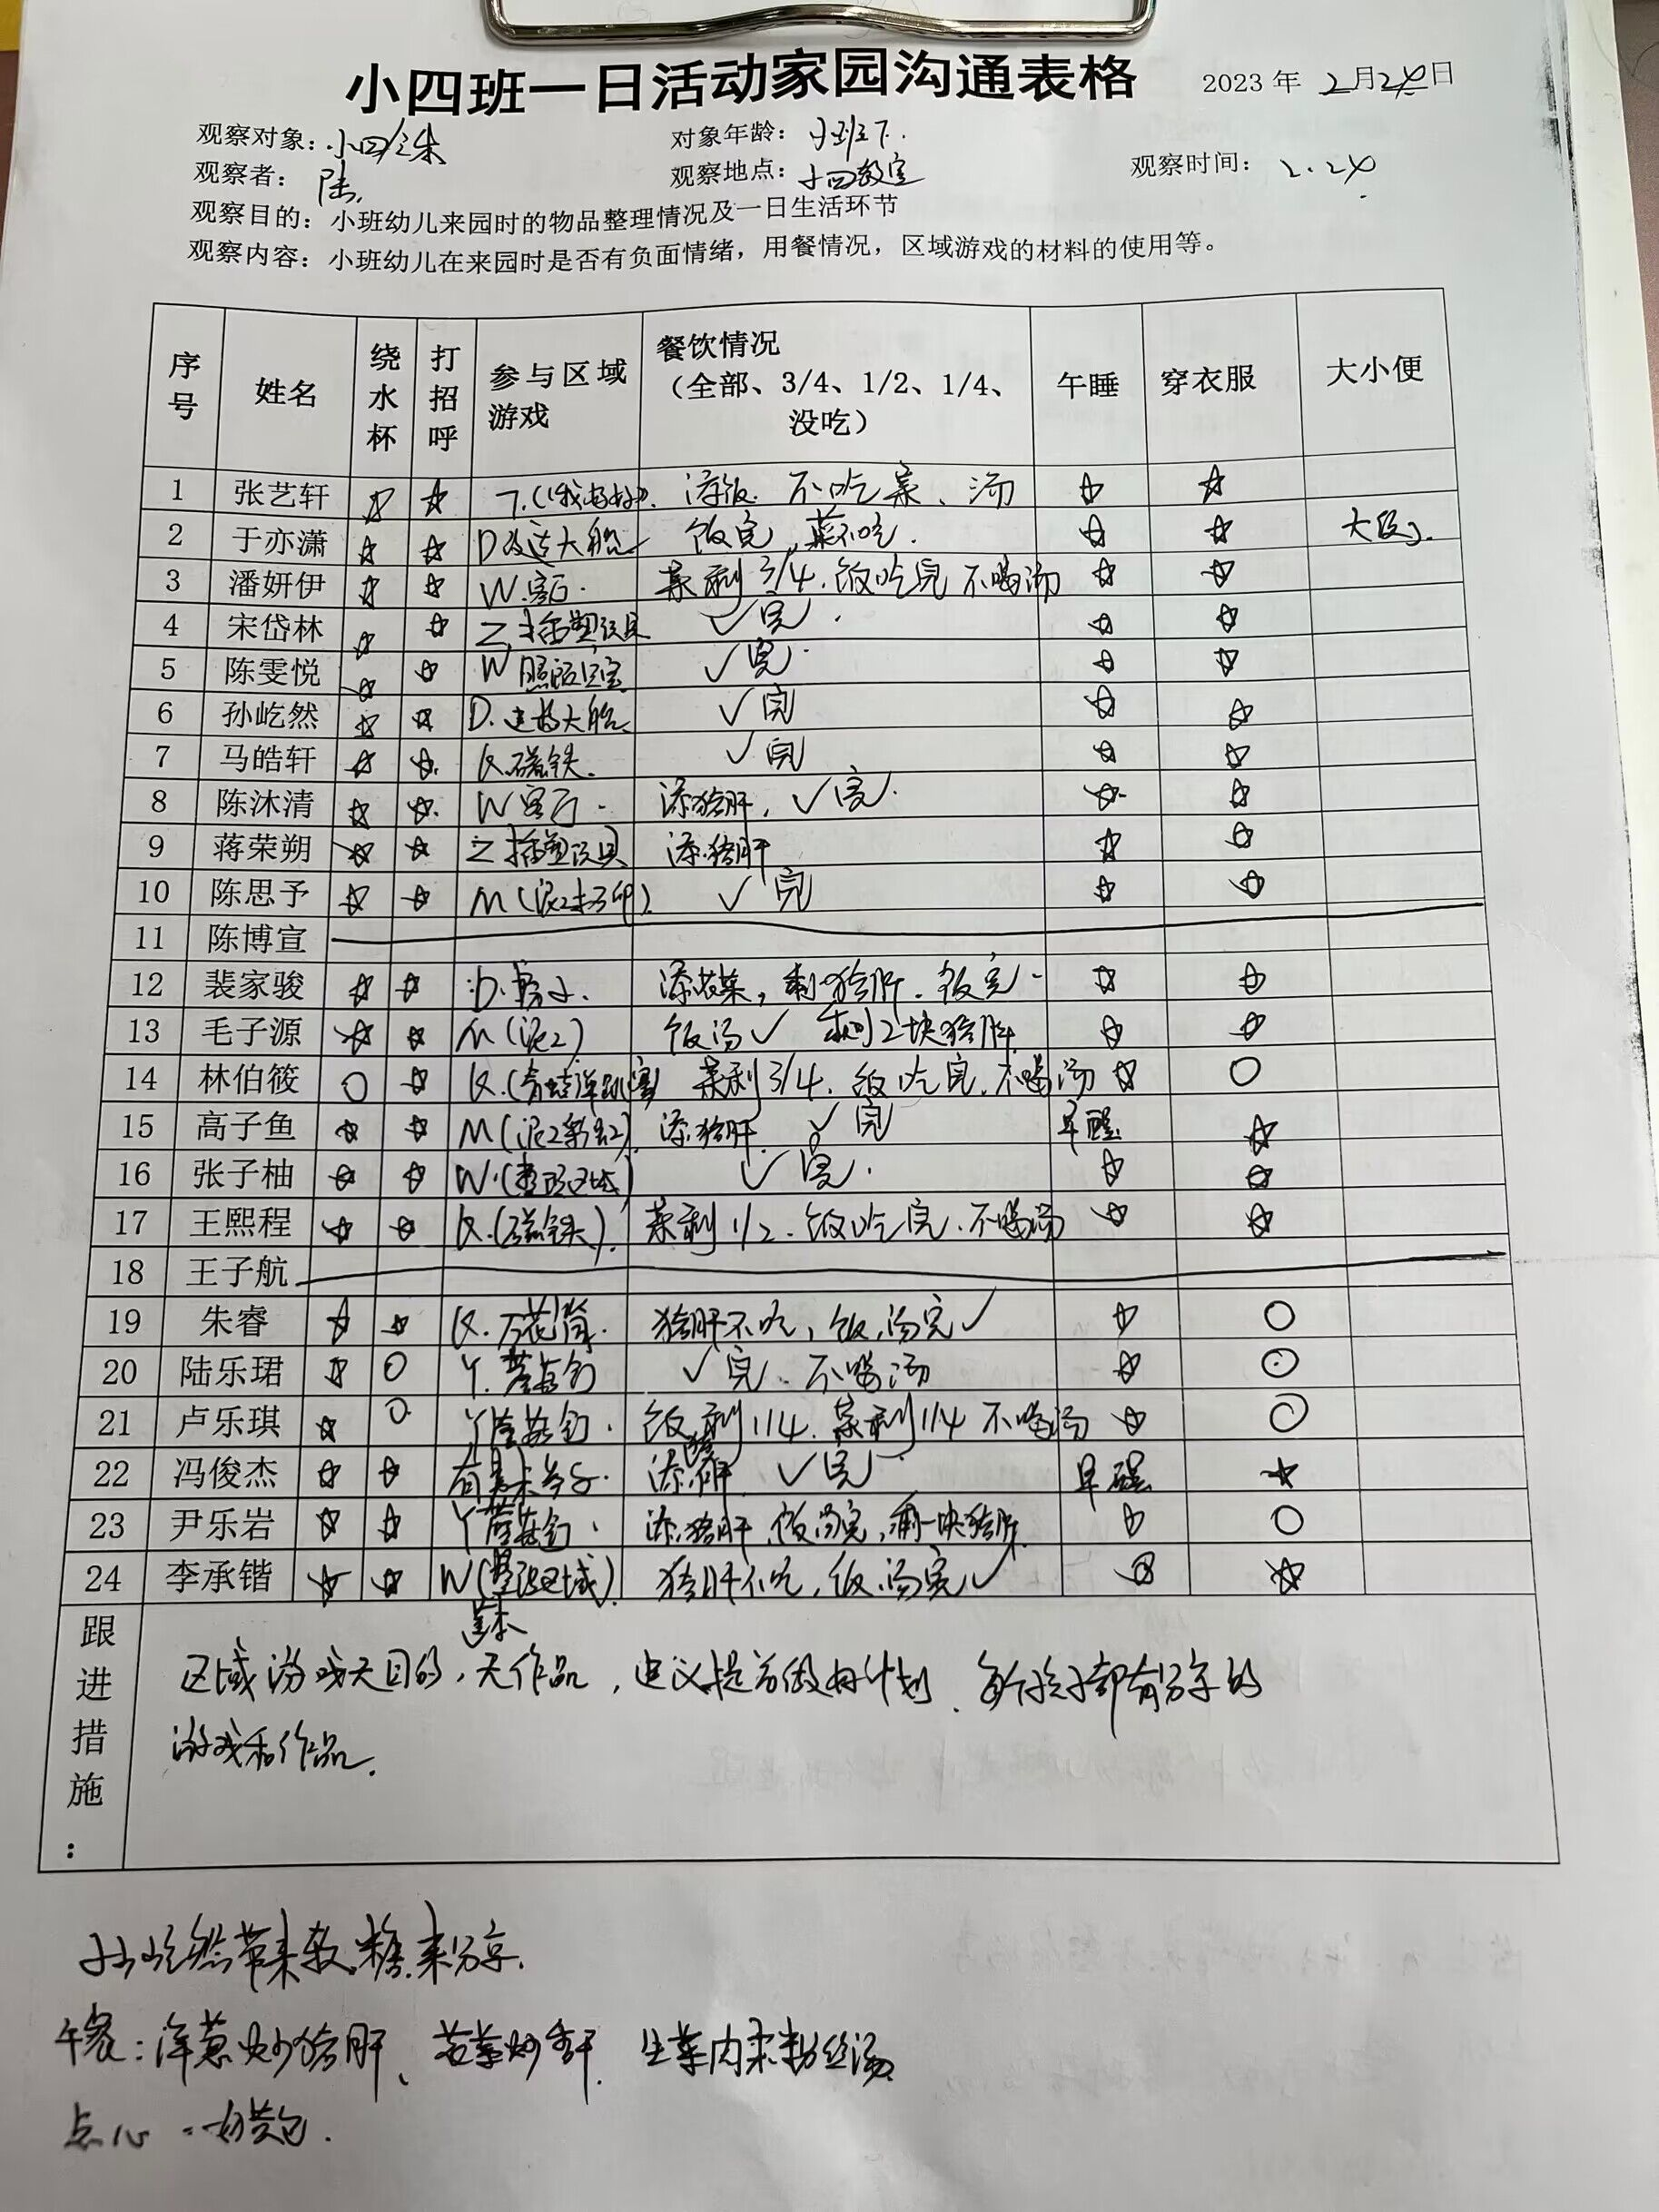 小四班一日活动家园沟通表格 2023 年 2月24日
观察对象： 对象年龄：小班下.
观察者：陆. 观察地点：小四教室 观察时间：2.24
观察目的：小班幼儿来园时的物品整理情况及一日生活环节
观察内容：小班幼儿在来园时是否有负面情绪，用餐情况，区域游戏的材料的使用等。
序号 姓名 绕水杯 打招呼 参与区域游戏 餐饮情况（全部、3/4、1/2、1/4、没吃） 午睡 穿衣服 大小便
1 张艺轩 ☆ ☆ 添饭. 不吃菜、汤 ☆ ☆
2 于亦潇 ☆ ☆ D 改造大船 饭完，菜不吃. ☆ ☆
3 潘妍伊 ☆ ☆ W.客厅. 菜剩3/4.饭吃完 不喝汤 ☆ ☆
4 宋岱林 ☆ ☆ Z.插塑玩具 ✓完. ☆ ☆
5 陈雯悦 ☆ ☆ W 照顾宝宝 ✓完. ☆ ☆
6 孙屹然 ☆ ☆ D.建构大船 ✓完 ☆ ☆
7 马皓轩 ☆ ☆ K.磁铁. ✓完 ☆ ☆
8 陈沐清 ☆ ☆ W 客厅. 添猪肝，✓完. ☆ ☆
9 蒋荣朔 ☆ ☆ Z 插塑玩具 添猪肝 ☆ ☆
10 陈思予 ☆ ☆ M（泥工拓印）. ✓完 ☆ ☆
11 陈博宣
12 裴家骏 ☆ ☆ D.房子. 添花菜，剩猪肝.饭完. ☆ ☆
13 毛子源 ☆ ☆ M（泥工） 饭汤✓ 剩2块猪肝 ☆ ☆
14 林伯筱 ○ ☆ K.(青蛙弹跳 菜剩3/4.饭吃完.不喝汤 ☆ ○
15 高子鱼 ☆ ☆ M（泥工彩虹）. 添猪肝. ✓完 早醒 ☆
16 张子柚 ☆ ☆ W.（整理区域） ✓完. ☆ ☆
17 王熙程 ☆ ☆ K.（磁铁）. 菜剩1/2.饭吃完.不喝汤 ☆ ☆
18 王子航
19 朱睿 ☆ ☆ K.万花筒. 猪肝不吃，饭.汤完✓ ☆ ○
20 陆乐珺 ☆ ○ Y.蘑菇钉 ✓完.不喝汤 ☆ ○
21 卢乐琪 ☆ ○ Y蘑菇钉. 饭剩1/4.菜剩1/4 不喝汤 ☆ ○
22 冯俊杰 ☆ ☆ 添猪肝 ✓完 早醒 ☆
23 尹乐岩 ☆ ☆ Y蘑菇钉. 添猪肝，饭汤完，剩一块猪肝. ☆ ○
24 李承锴 ☆ ☆ W（整理区域）. 猪肝不吃，饭.汤完✓ ☆ ☆
跟进措施：
区域游戏无目的，无作品，建议提前做好计划、每个孩子都有分享的
游戏和作品.
孙屹然带来软糖来分享.
午餐：洋葱炒猪肝、花菜炒香干. 生菜肉末粉丝汤
点心：奶黄包.